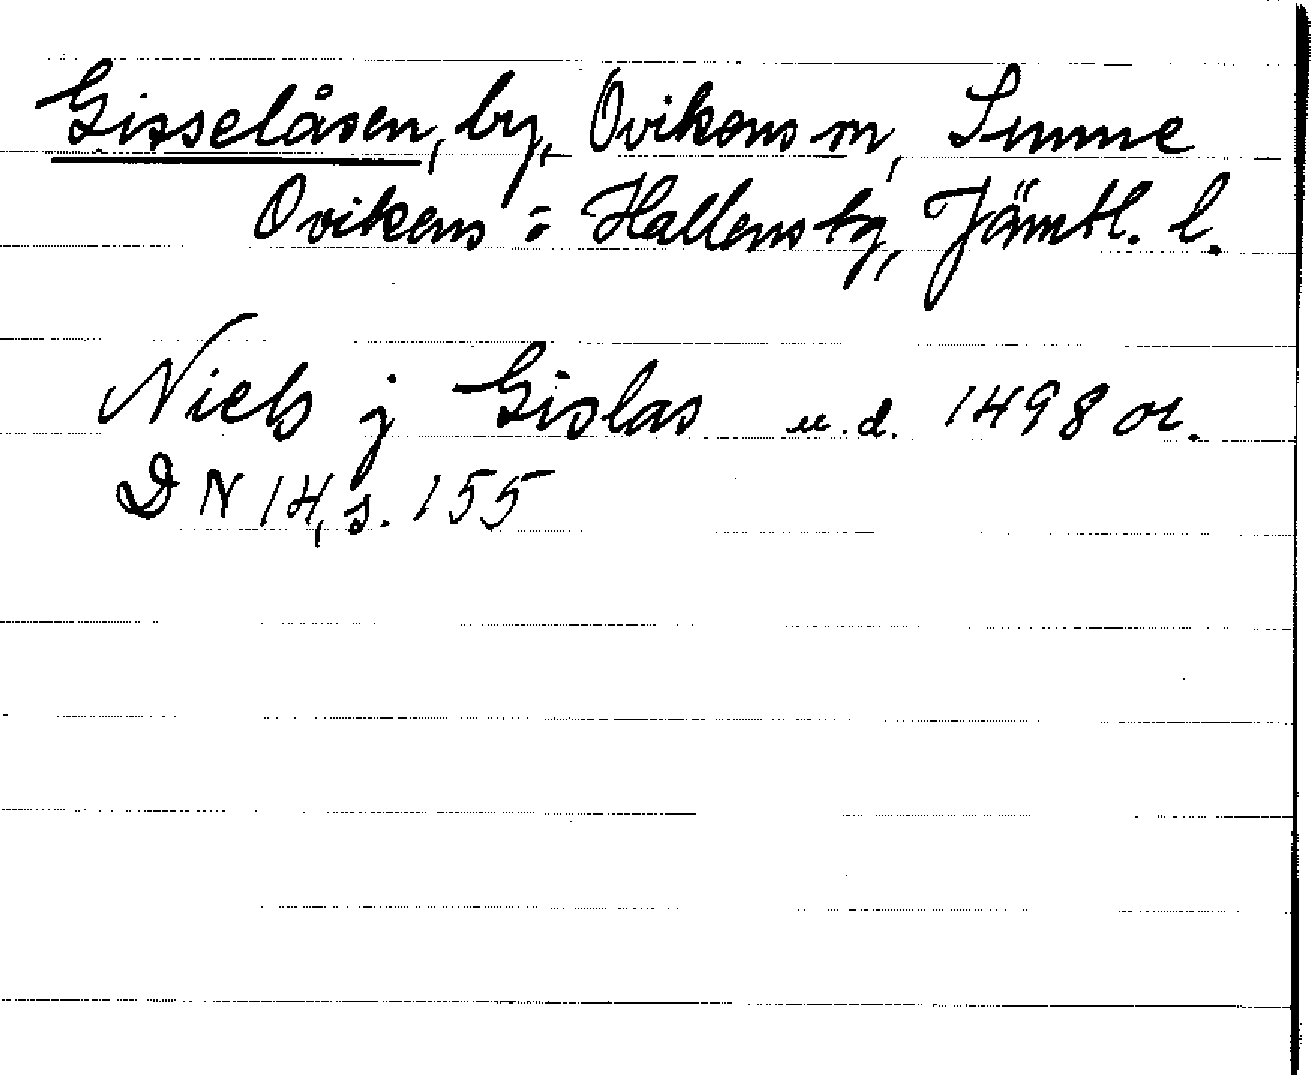 Gisselåsen, by, Ovikens sn, Sunne
Ovikens o Hallens tg, Jämtl. l.
Niels j Gislas u.d. 1498 or.
DN 14, s. 155